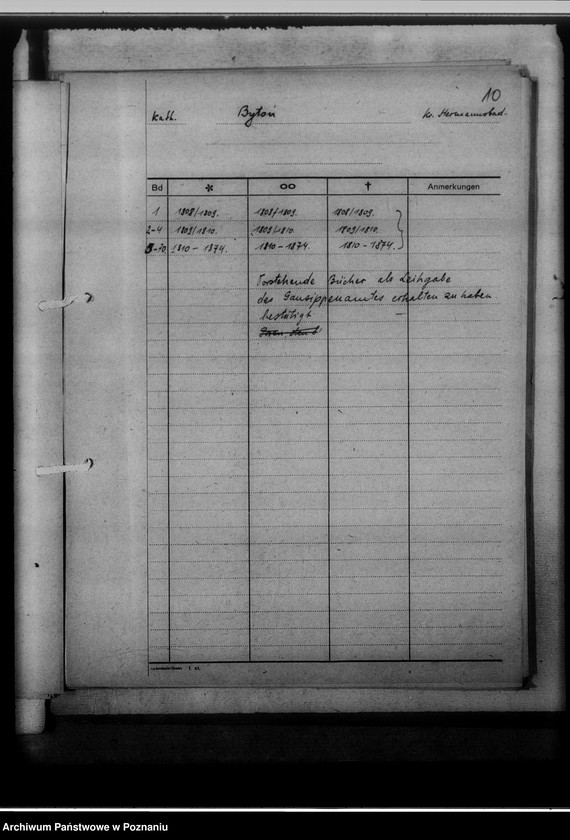 10
Kath. Bytoń Kr. Hermannsbad.
Bd * ∞ † Anmerkungen
1 1808/1809. 1808/1809. 1808/1809.
2-4 1809/1810. 1809/1810. 1809/1810.
5-70 1810 – 1874. 1810 – 1874. 1810 – 1874.
Vorstehende Bücher als Leihgabe
des Gausippenamtes erhalten zu haben
bestätigt
Archiwum Państwowe w Poznaniu